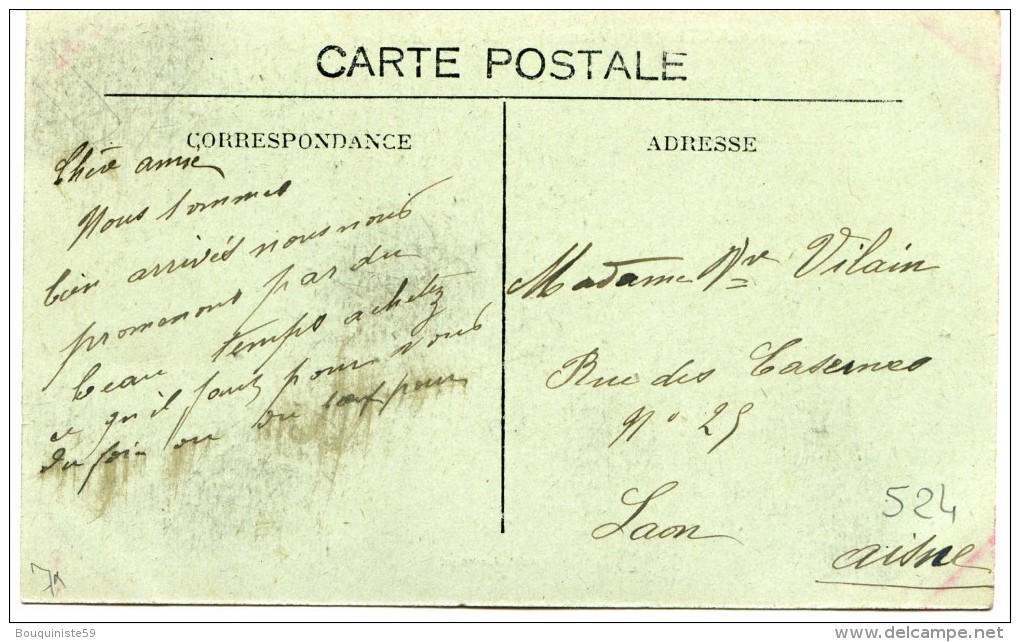 CARTE POSTALE
CORRESPONDANCE
Chère amie
Nous sommes
bien arrivés nous nous
promenons par du
beau temps achetez
ce qu'il faut pour vous
du foin ou du pour
ADRESSE
Madame Vve Vilain
Rue des Casernes
N° 25
Laon
aisne
524
Bouquiniste59
delcampe.net